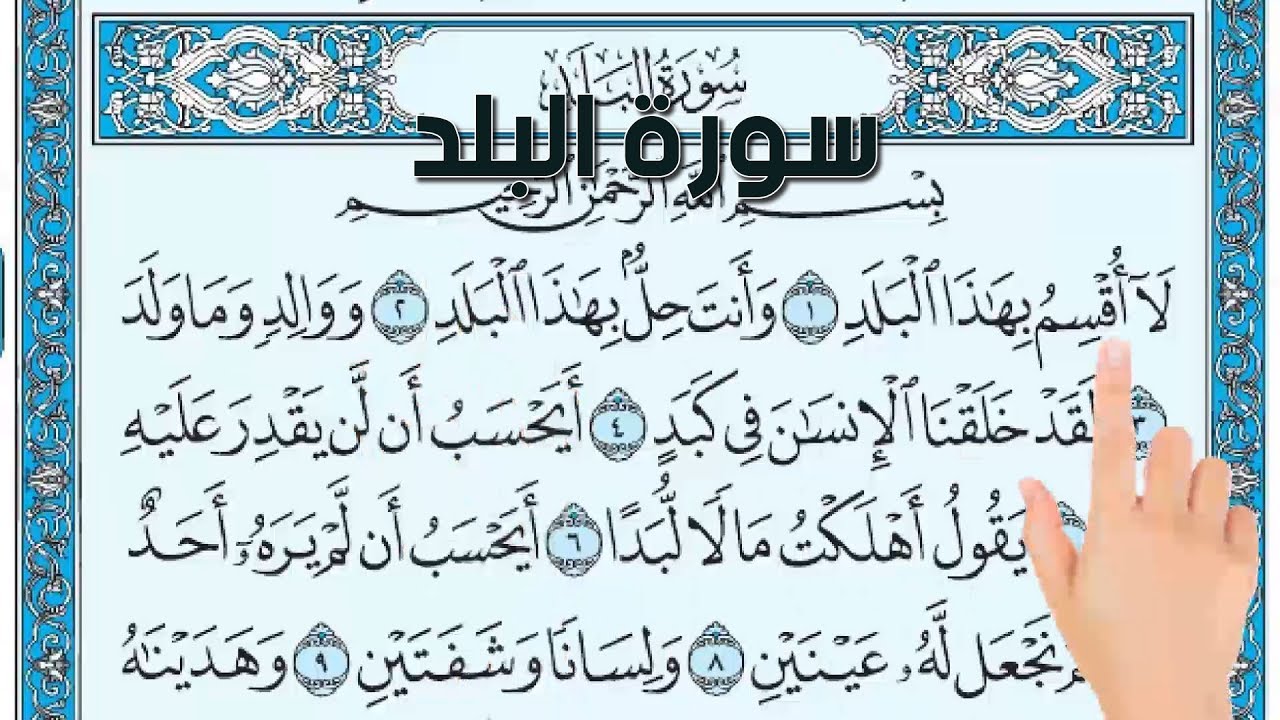 سُورَةُ البَلَدِ
سورة البلد
بِسْمِ ٱللَّهِ ٱلرَّحْمَٰنِ ٱلرَّحِيمِ
لَآ أُقْسِمُ بِهَٰذَا ٱلْبَلَدِ ١ وَأَنتَ حِلٌّۢ بِهَٰذَا ٱلْبَلَدِ ٢ وَوَالِدٍ وَمَا وَلَدَ
٣ لَقَدْ خَلَقْنَا ٱلْإِنسَٰنَ فِى كَبَدٍ ٤ أَيَحْسَبُ أَن لَّن يَقْدِرَ عَلَيْهِ
يَقُولُ أَهْلَكْتُ مَالًا لُّبَدًا ٦ أَيَحْسَبُ أَن لَّمْ يَرَهُۥٓ أَحَدٌ
نَجْعَل لَّهُۥ عَيْنَيْنِ ٨ وَلِسَانًا وَشَفَتَيْنِ ٩ وَهَدَيْنَٰهُ